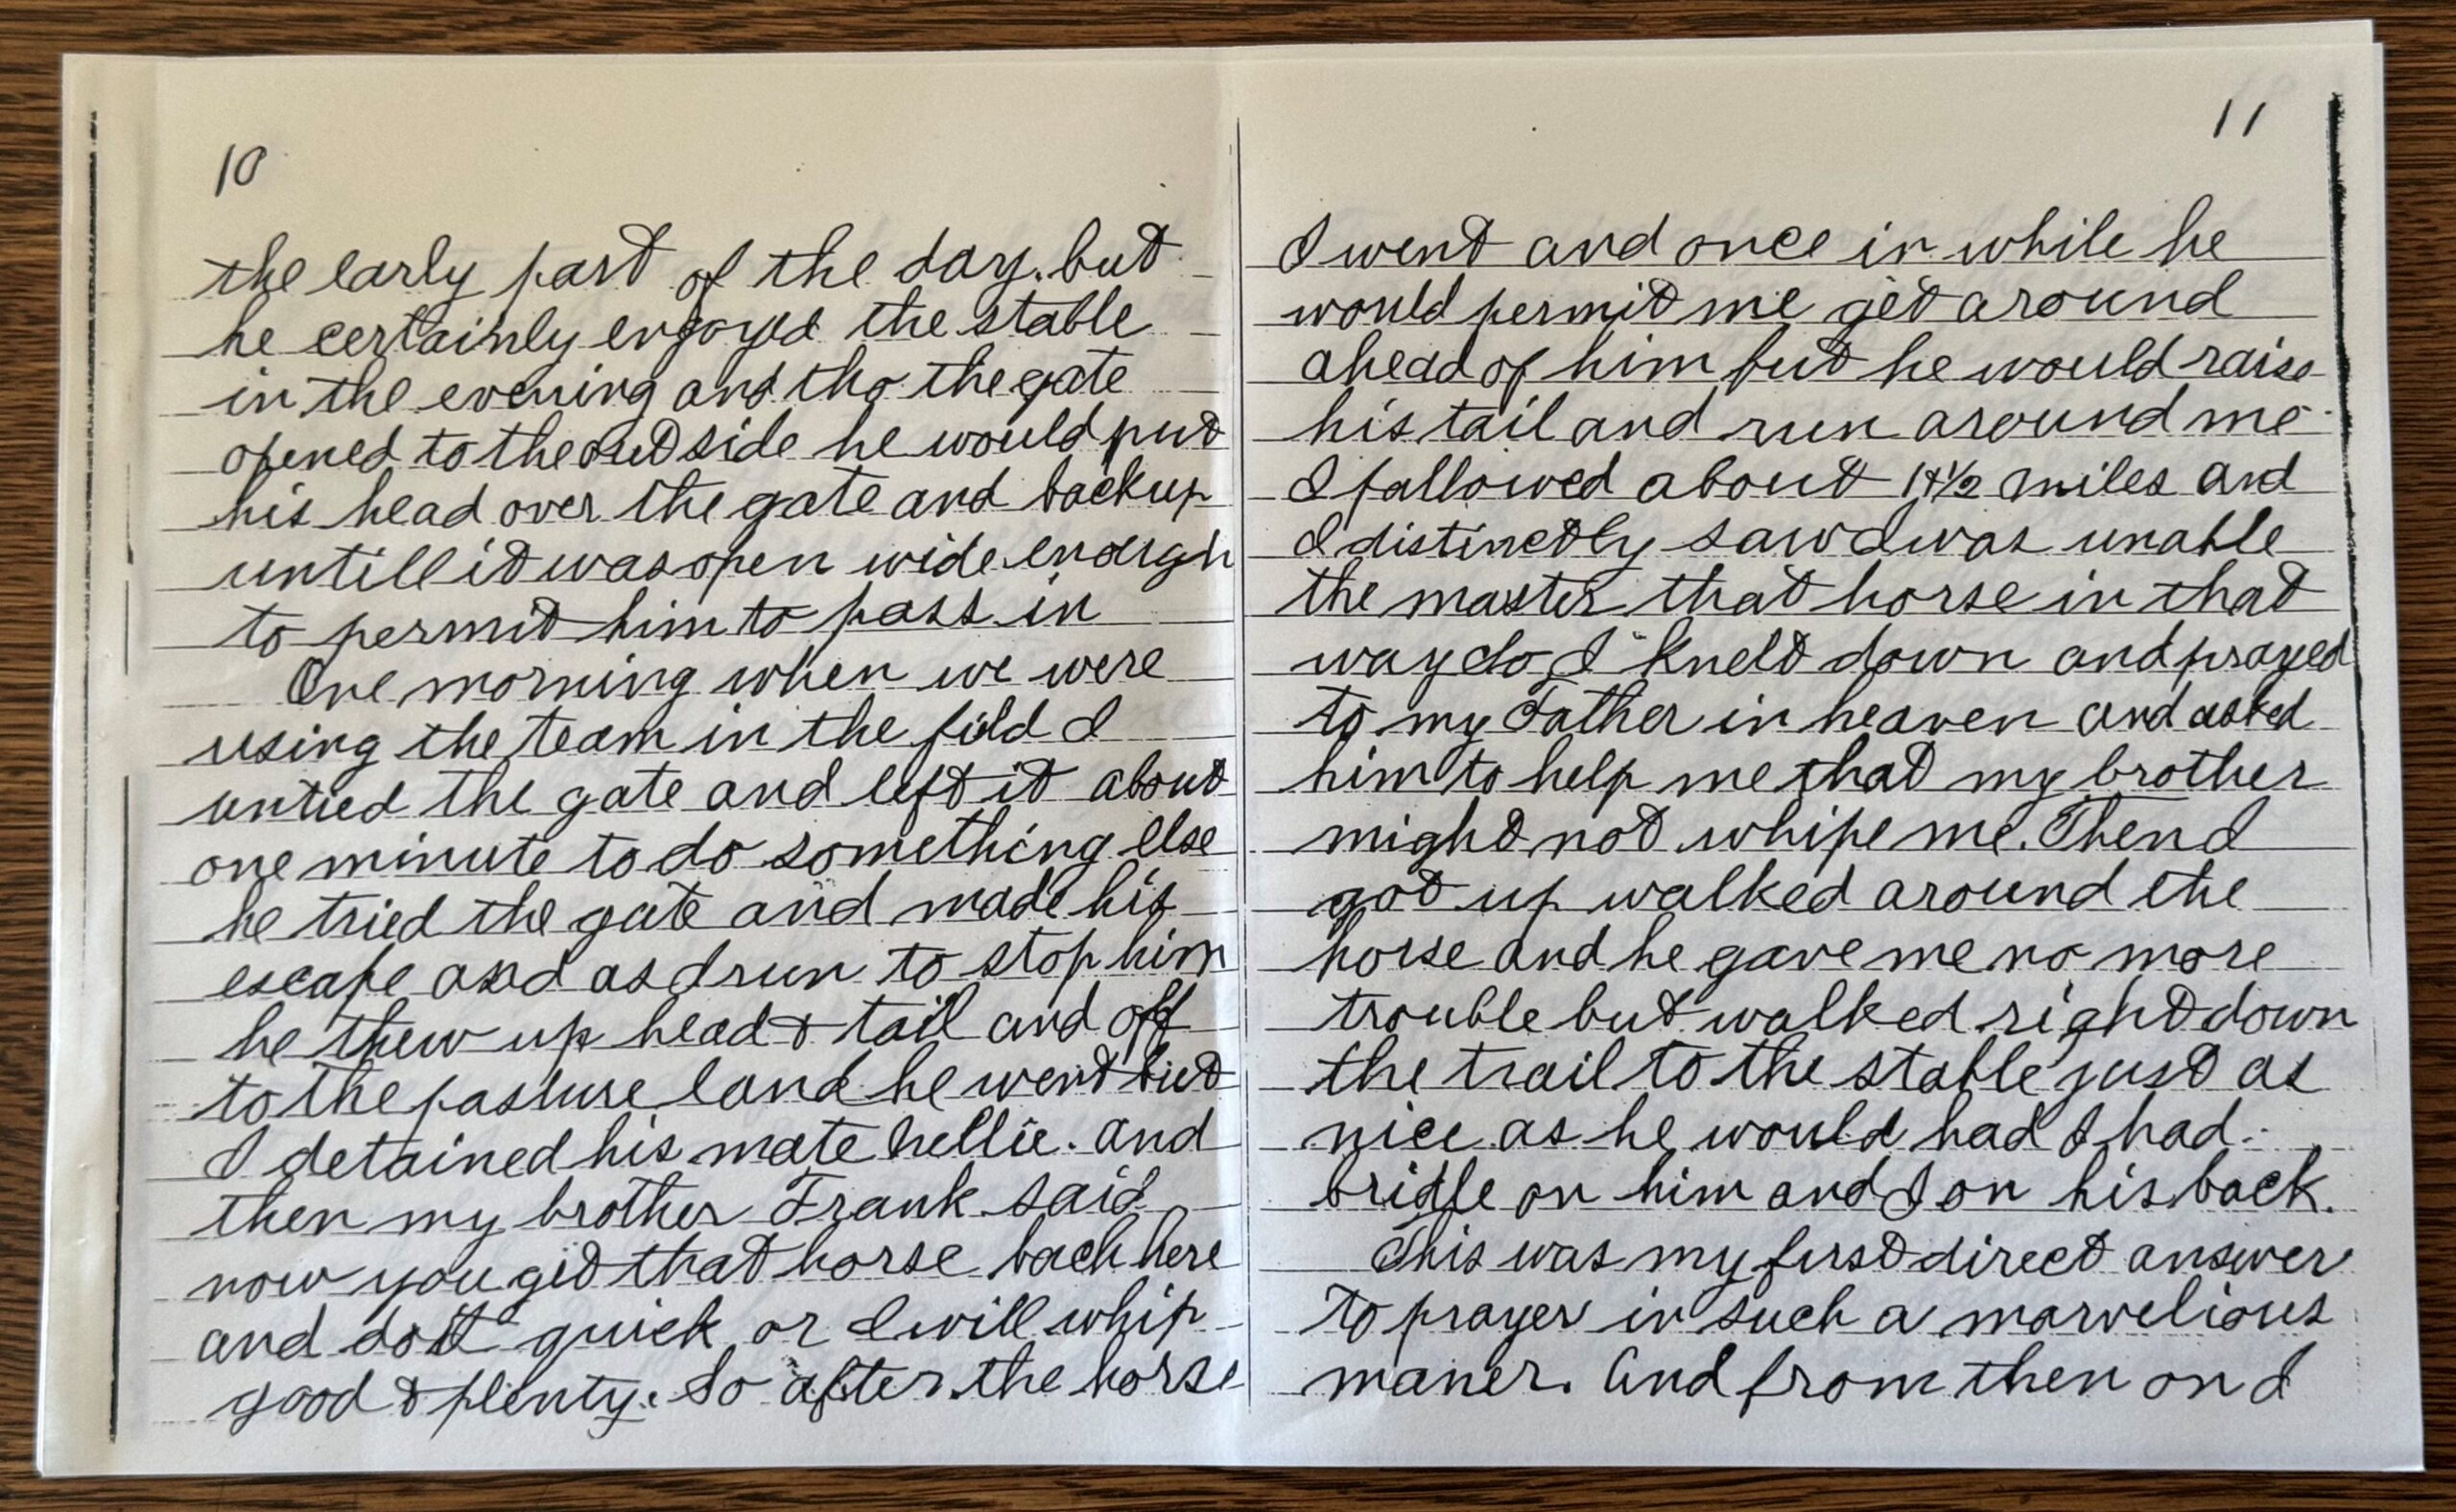 10
the early part of the day, but
he certainly enjoyed the stable
in the evening and tho the gate
opened to the outside he would put
his head over the gate and back up
untill it was open wide enough
to permit him to pass in
One morning when we were
using the team in the field I
untied the gate and left it about
one minute to do something else
he tried the gate and made his
escape and as I run to stop him
he thew up head & tail and off
to the pasture land he went but
I detained his mate hellie. and
then my brother Frank said
now you git that horse back here
and do it quick or I will whip
good & plenty. So after the horse
11
I went and once in while he
would permit me get around
ahead of him but he would raise
his tail and run around me
I followed about 1 & 1/2 miles and
I distinctly saw I was unable
the master that horse in that
way do I knelt down and prayed
to my Father in heaven and asked
him to help me that my brother
might not whipe me. Then I
got up walked around the
horse and he gave me no more
trouble but walked right down
the trail to the stable just as
nice as he would had I had
bridle on him and I on his back.
This was my first direct answer
to prayer in such a marvelious
maner. And from then on I